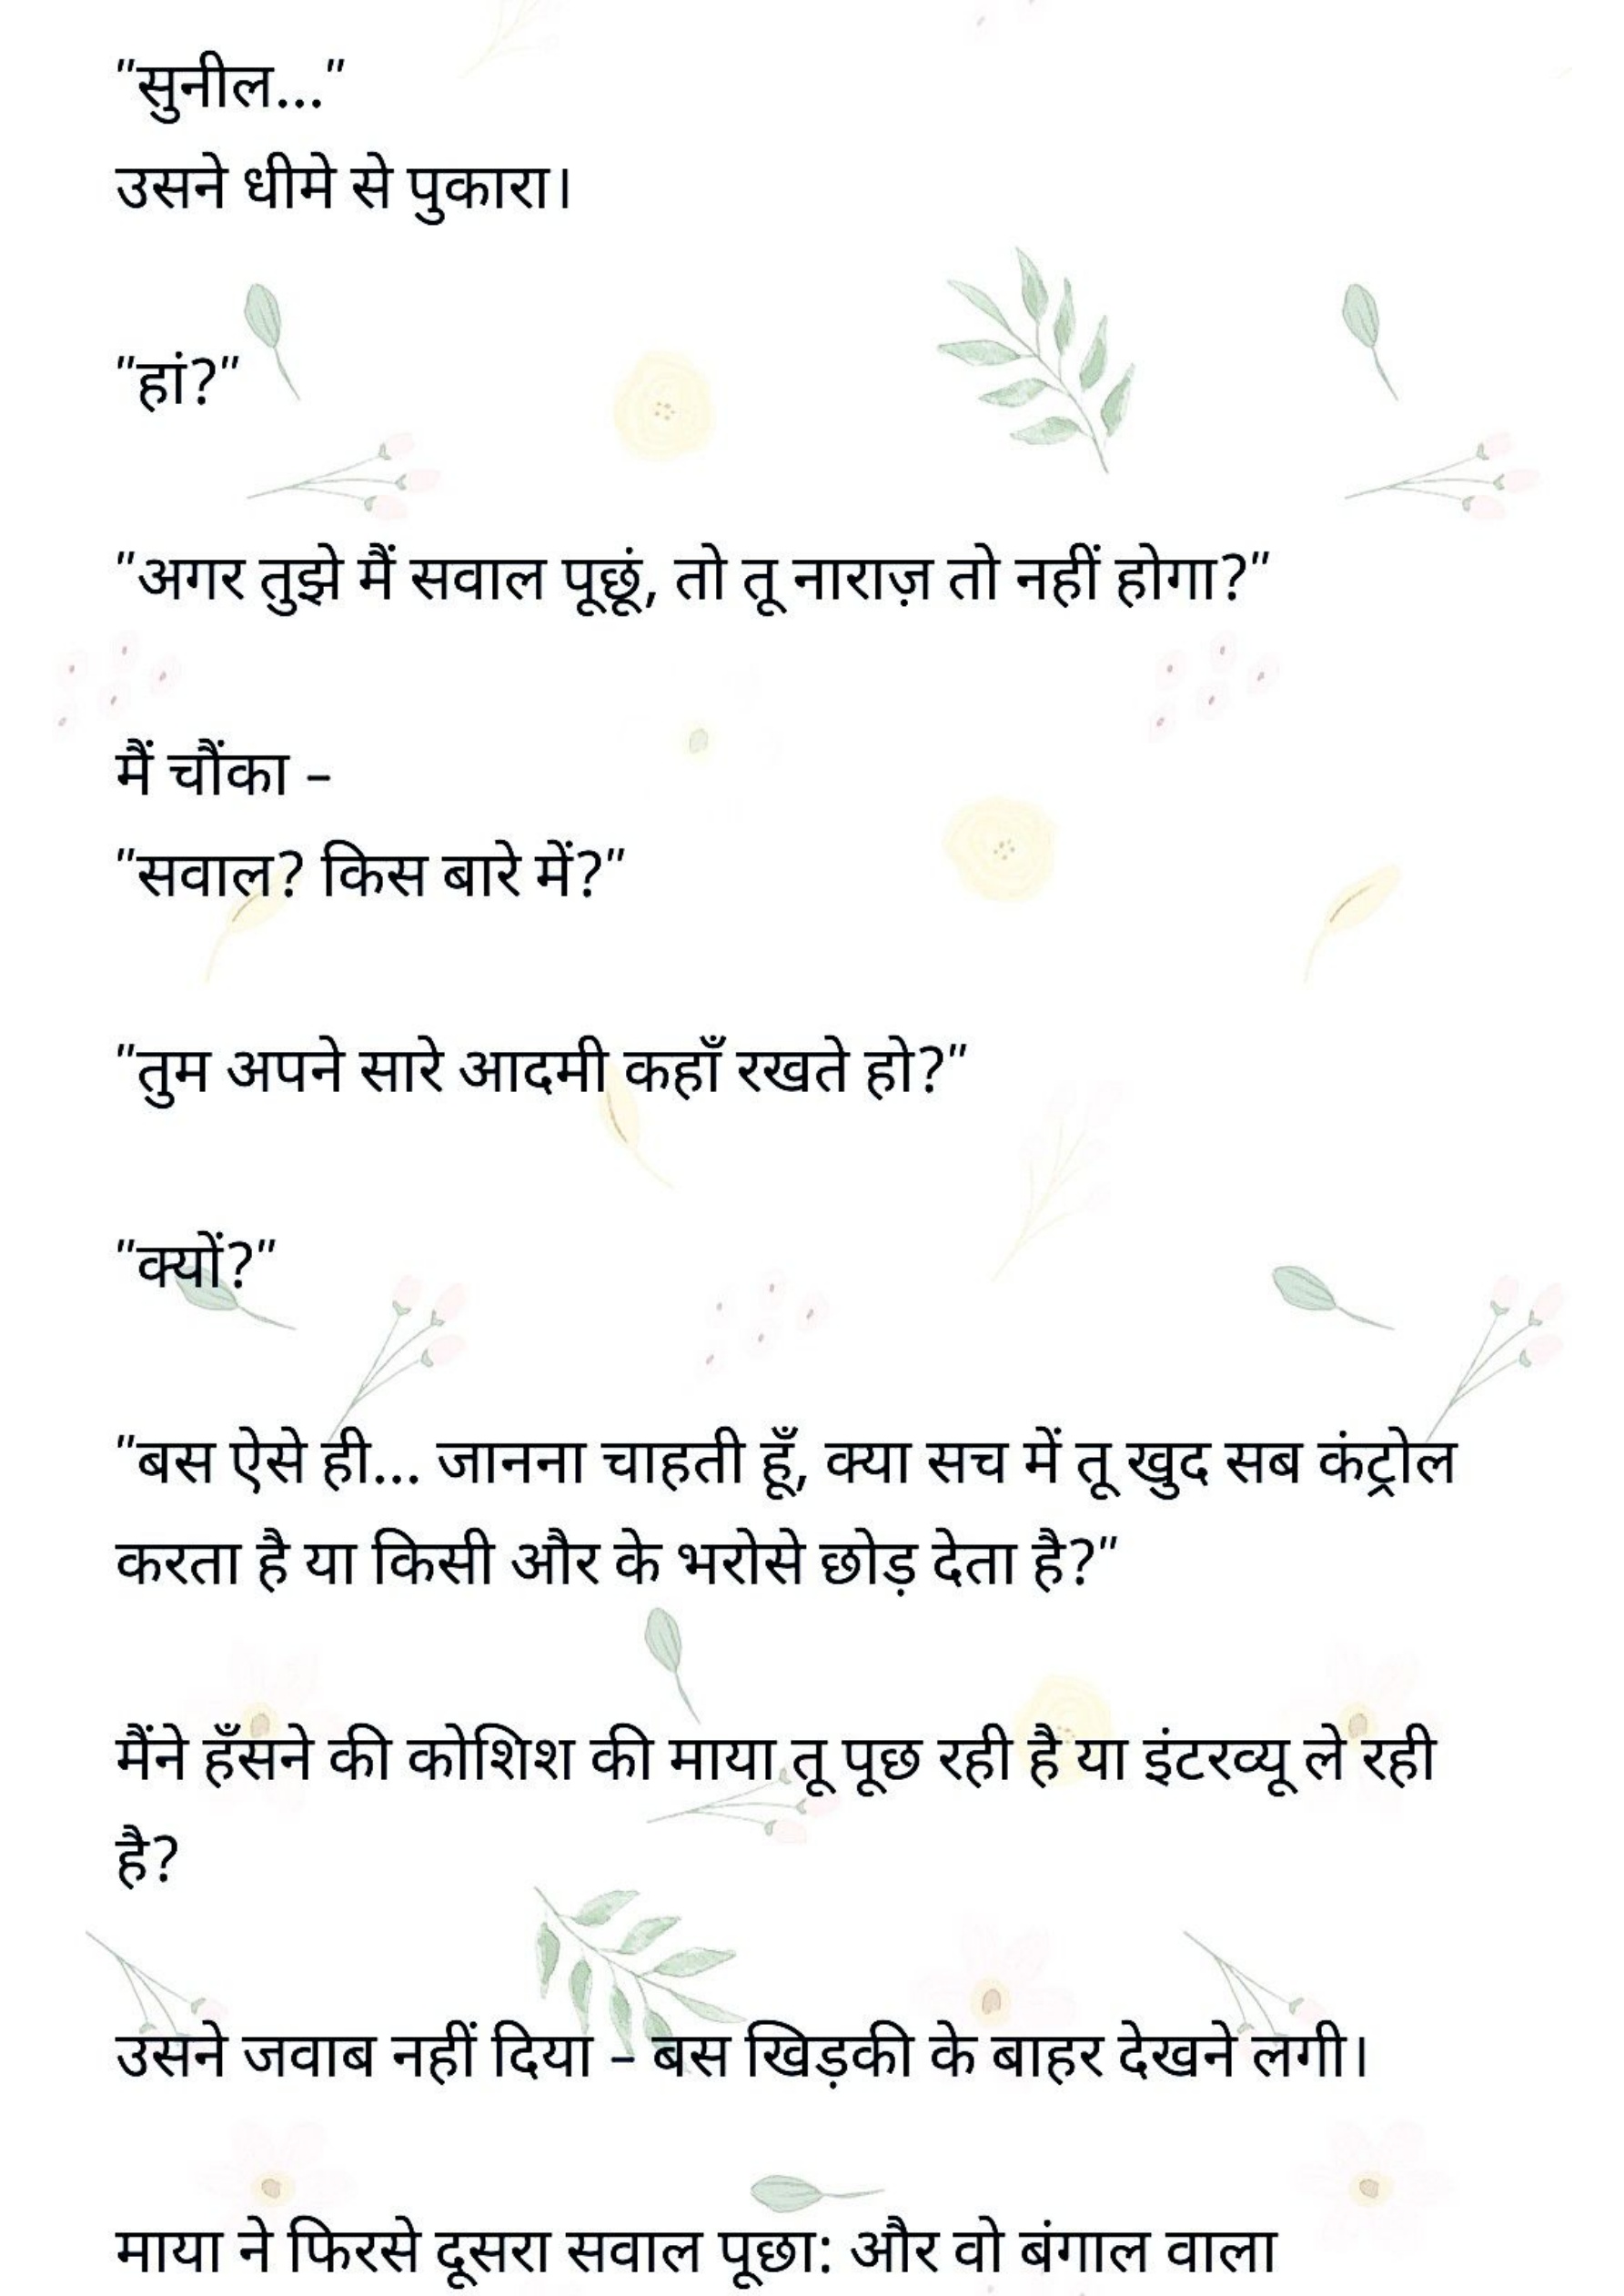 "सुनील..."
उसने धीमे से पुकारा।
"हां?"
"अगर तुझे मैं सवाल पूछूं, तो तू नाराज़ तो नहीं होगा?"
मैं चौंका –
"सवाल? किस बारे में?"
"तुम अपने सारे आदमी कहाँ रखते हो?"
"क्यों?"
"बस ऐसे ही... जानना चाहती हूँ, क्या सच में तू खुद सब कंट्रोल
करता है या किसी और के भरोसे छोड़ देता है?"
मैंने हँसने की कोशिश की माया तू पूछ रही है या इंटरव्यू ले रही
है?
उसने जवाब नहीं दिया – बस खिड़की के बाहर देखने लगी।
माया ने फिरसे दूसरा सवाल पूछा: और वो बंगाल वाला